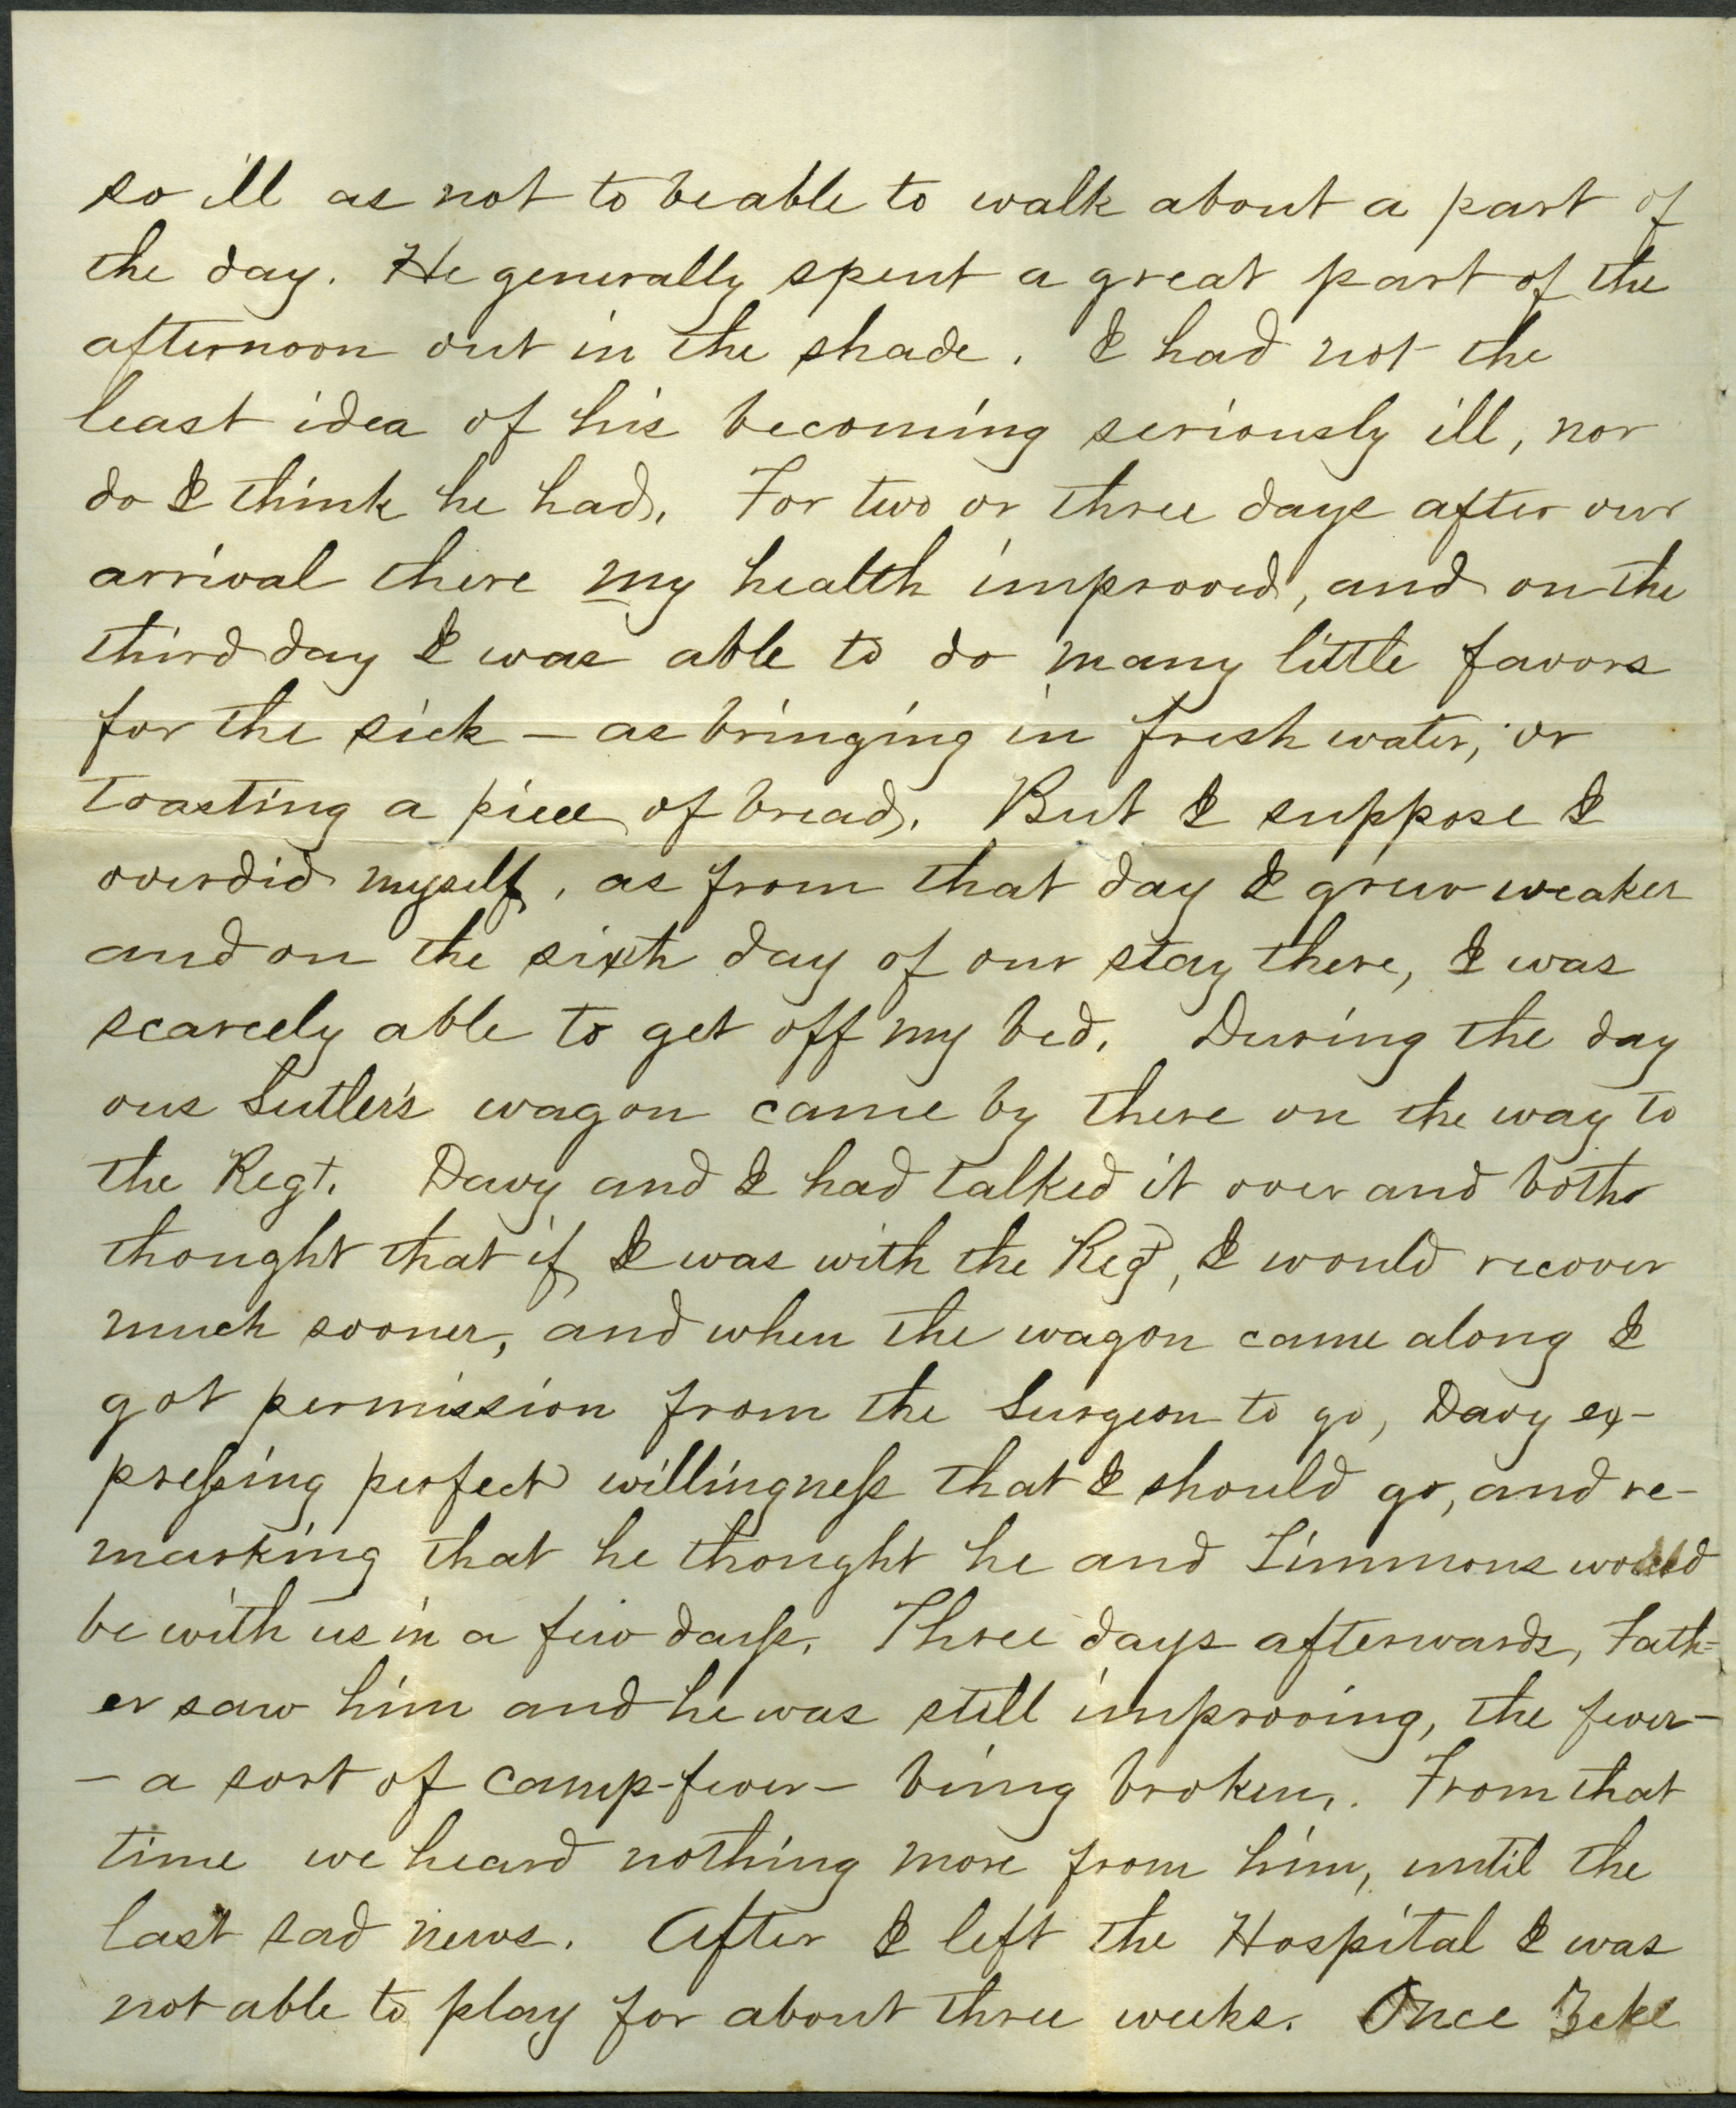 so ill as not to be able to walk about a part of
the day. He generally spent a great part of the
afternoon out in the shade. I had not the
least idea of his becoming seriously ill, nor
do I think he had. For two or three days after our
arrival there my health improved, and on the
third day I was able to do many little favors
for the sick — as bringing in fresh water, or
toasting a piece of bread. But I suppose I
overdid myself, as from that day I grew weaker
and on the sixth day of our stay there, I was
scarcely able to get off my bed. During the day
our Sutler's wagon came by there on the way to
the Regt. Davy and I had talked it over and both
thought that if I was with the Regt, I would recover
much sooner, and when the wagon came along I
got permission from the Surgeon to go, Davy ex-
pressing perfect willingness that I should go, and re-
marking that he thought he and Timmons would
be with us in a few days. Three days afterwards, Fath=
er saw him and he was still improving, the fever—
— a sort of camp-fever — being broken. From that
time we heard nothing more from him, until the
last sad news. After I left the Hospital I was
not able to play for about three weeks. Once Zeke